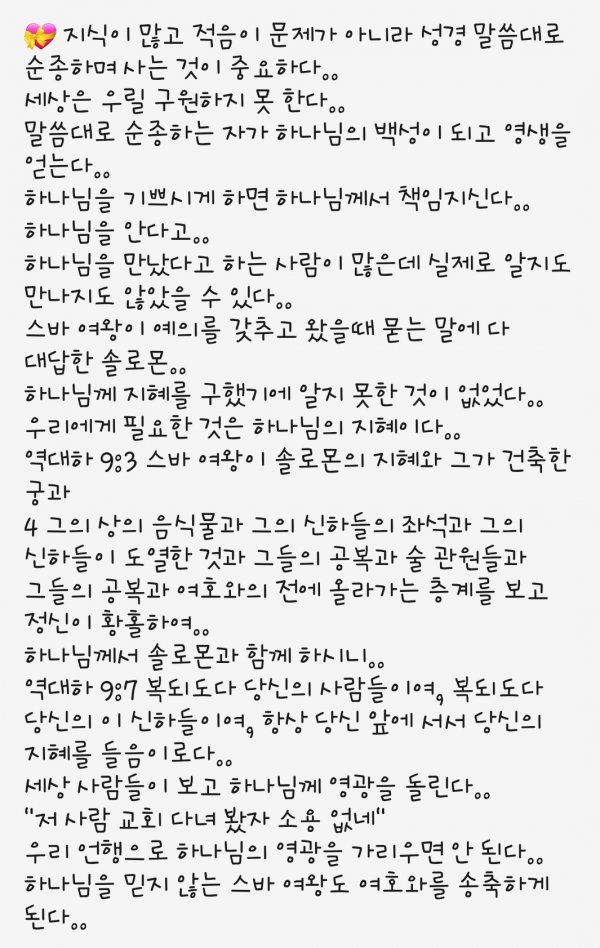 💝 지식이 많고 적음이 문제가 아니라 성경 말씀대로
순종하며 사는 것이 중요하다。。
세상은 우릴 구원하지 못 한다。。
말씀대로 순종하는 자가 하나님의 백성이 되고 영생을
얻는다。。
하나님을 기쁘시게 하면 하나님께서 책임지신다。。
하나님을 안다고。。
하나님을 만났다고 하는 사람이 많은데 실제로 알지도
만나지도 않았을 수 있다。。
스바 여왕이 예의를 갖추고 왔을때 묻는 말에 다
대답한 솔로몬。。
하나님께 지혜를 구했기에 알지 못한 것이 없었다。。
우리에게 필요한 것은 하나님의 지혜이다。。
역대하 9:3 스바 여왕이 솔로몬의 지혜와 그가 건축한
궁과
4 그의 상의 음식물과 그의 신하들의 좌석과 그의
신하들이 도열한 것과 그들의 공복과 술 관원들과
그들의 공복과 여호와의 전에 올라가는 층계를 보고
정신이 황홀하여。。
하나님께서 솔로몬과 함께 하시니。。
역대하 9:7 복되도다 당신의 사람들이여, 복되도다
당신의 이 신하들이여, 항상 당신 앞에 서서 당신의
지혜를 들음이로다。。
세상 사람들이 보고 하나님께 영광을 돌린다。。
"저 사람 교회 다녀 봤자 소용 없네"
우리 언행으로 하나님의 영광을 가리우면 안 된다。。
하나님을 믿지 않는 스바 여왕도 여호와를 송축하게
된다。。